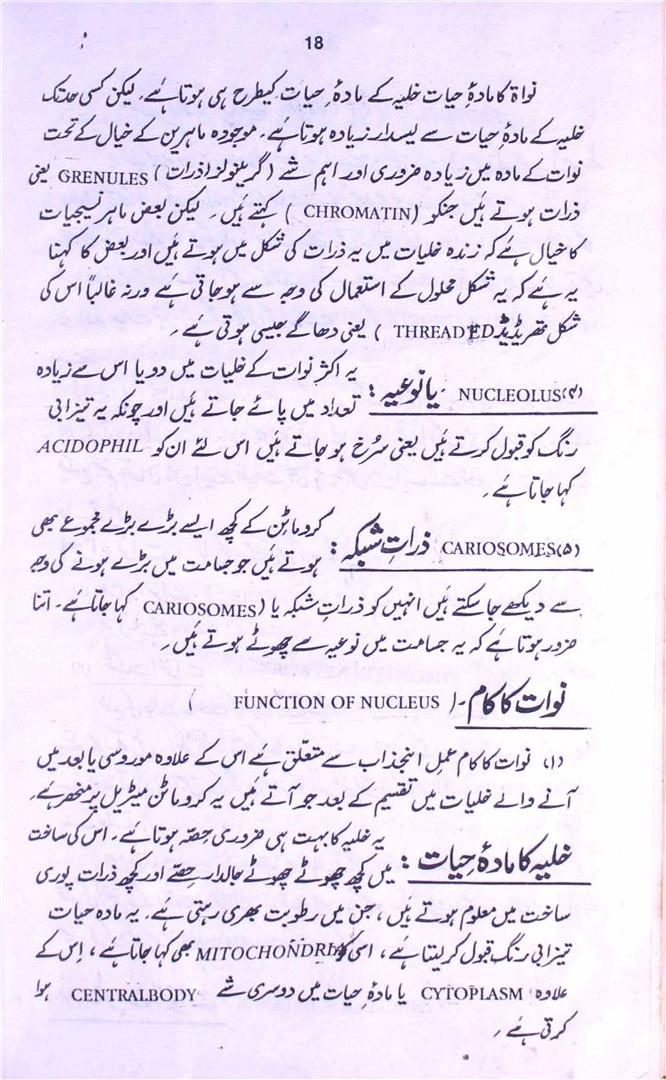 18
نواۃ کا مادۂ حیات خلیہ کے مادۂ حیات کیطرح ہی ہوتا ہے۔ لیکن کسی حد تک
خلیہ کے مادۂ حیات سے لیسدار زیادہ ہوتا ہے۔ موجودہ ماہرین کے خیال کے تحت
نوات کے مادہ میں زیادہ ضروری اور اہم شے (گرینولز اذرات) GRENULES یعنی
ذرات ہوتے ہیں جنکو (CHROMATIN) کہتے ہیں۔ لیکن بعض ماہر نسیجیات
کا خیال ہے کہ زندہ خلیات میں یہ ذرات کی شکل میں ہوتے ہیں اور بعض کا کہنا
یہ ہے کہ یہ شکل محلول کے استعمال کی وجہ سے ہو جاتی ہے ورنہ غالباً اس کی
شکل تھریڈیڈ THREADED ) یعنی دھاگے جیسی ہوتی ہے۔
(۴) NUCLEOLUS یا نوعیہ : یہ اکثر نوات کے خلیات میں دو یا اس سے زیادہ
تعداد میں پائے جاتے ہیں اور چونکہ یہ تیزابی
رنگ کو قبول کرتے ہیں یعنی سُرخ ہو جاتے ہیں اس لئے ان کو ACIDOPHIL
کہا جاتا ہے۔
(۵) CARIOSOMES ذراتِ شبکہ : کروماٹن کے کچھ ایسے بڑے بڑے مجموعے بھی
ہوتے ہیں جو جسامت میں بڑے ہونے کی وجہ
سے دیکھے جا سکتے ہیں انہیں کو ذراتِ شبکہ یا (CARIOSOMES) کہا جاتا ہے۔ اتنا
ضرور ہوتا ہے کہ یہ جسامت میں نوعیہ سے چھوٹے ہوتے ہیں۔
نوات کا کام۔ ( FUNCTION OF NUCLEUS )
(۱) نوات کا کام عملِ انجذاب سے متعلق ہے اس کے علاوہ موروسی یا بعد میں
آنے والے خلیات میں تقسیم کے بعد جو آتے ہیں یہ کروماٹن میٹریل پر منحصر ہے۔
خلیہ کا مادۂ حیات : یہ خلیہ کا بہت ہی ضروری حِصّہ ہوتا ہے۔ اس کی ساخت
میں کچھ چھوٹے چھوٹے جالدار حصّے اور کچھ ذرات پوری
ساخت میں معلوم ہوتے ہیں، جن میں رطوبت بھری رہتی ہے۔ یہ مادہ حیات
تیزابی رنگ قبول کر لیتا ہے، اسی کو MITOCHONDRIA بھی کہا جاتا ہے، اِس کے
علاوہ CYTOPLASM یا مادۂ حیات میں دوسری شے CENTRALBODY ہوا
کرتی ہے۔